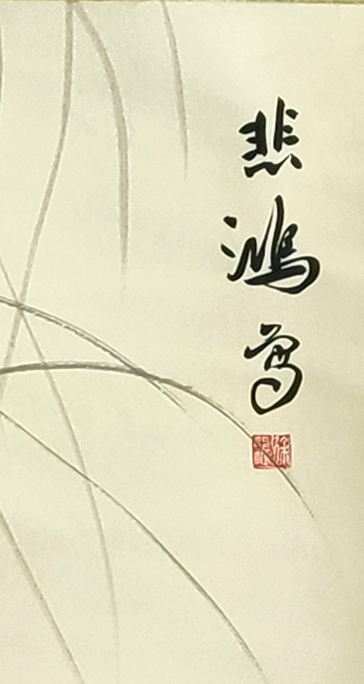 悲鴻寫